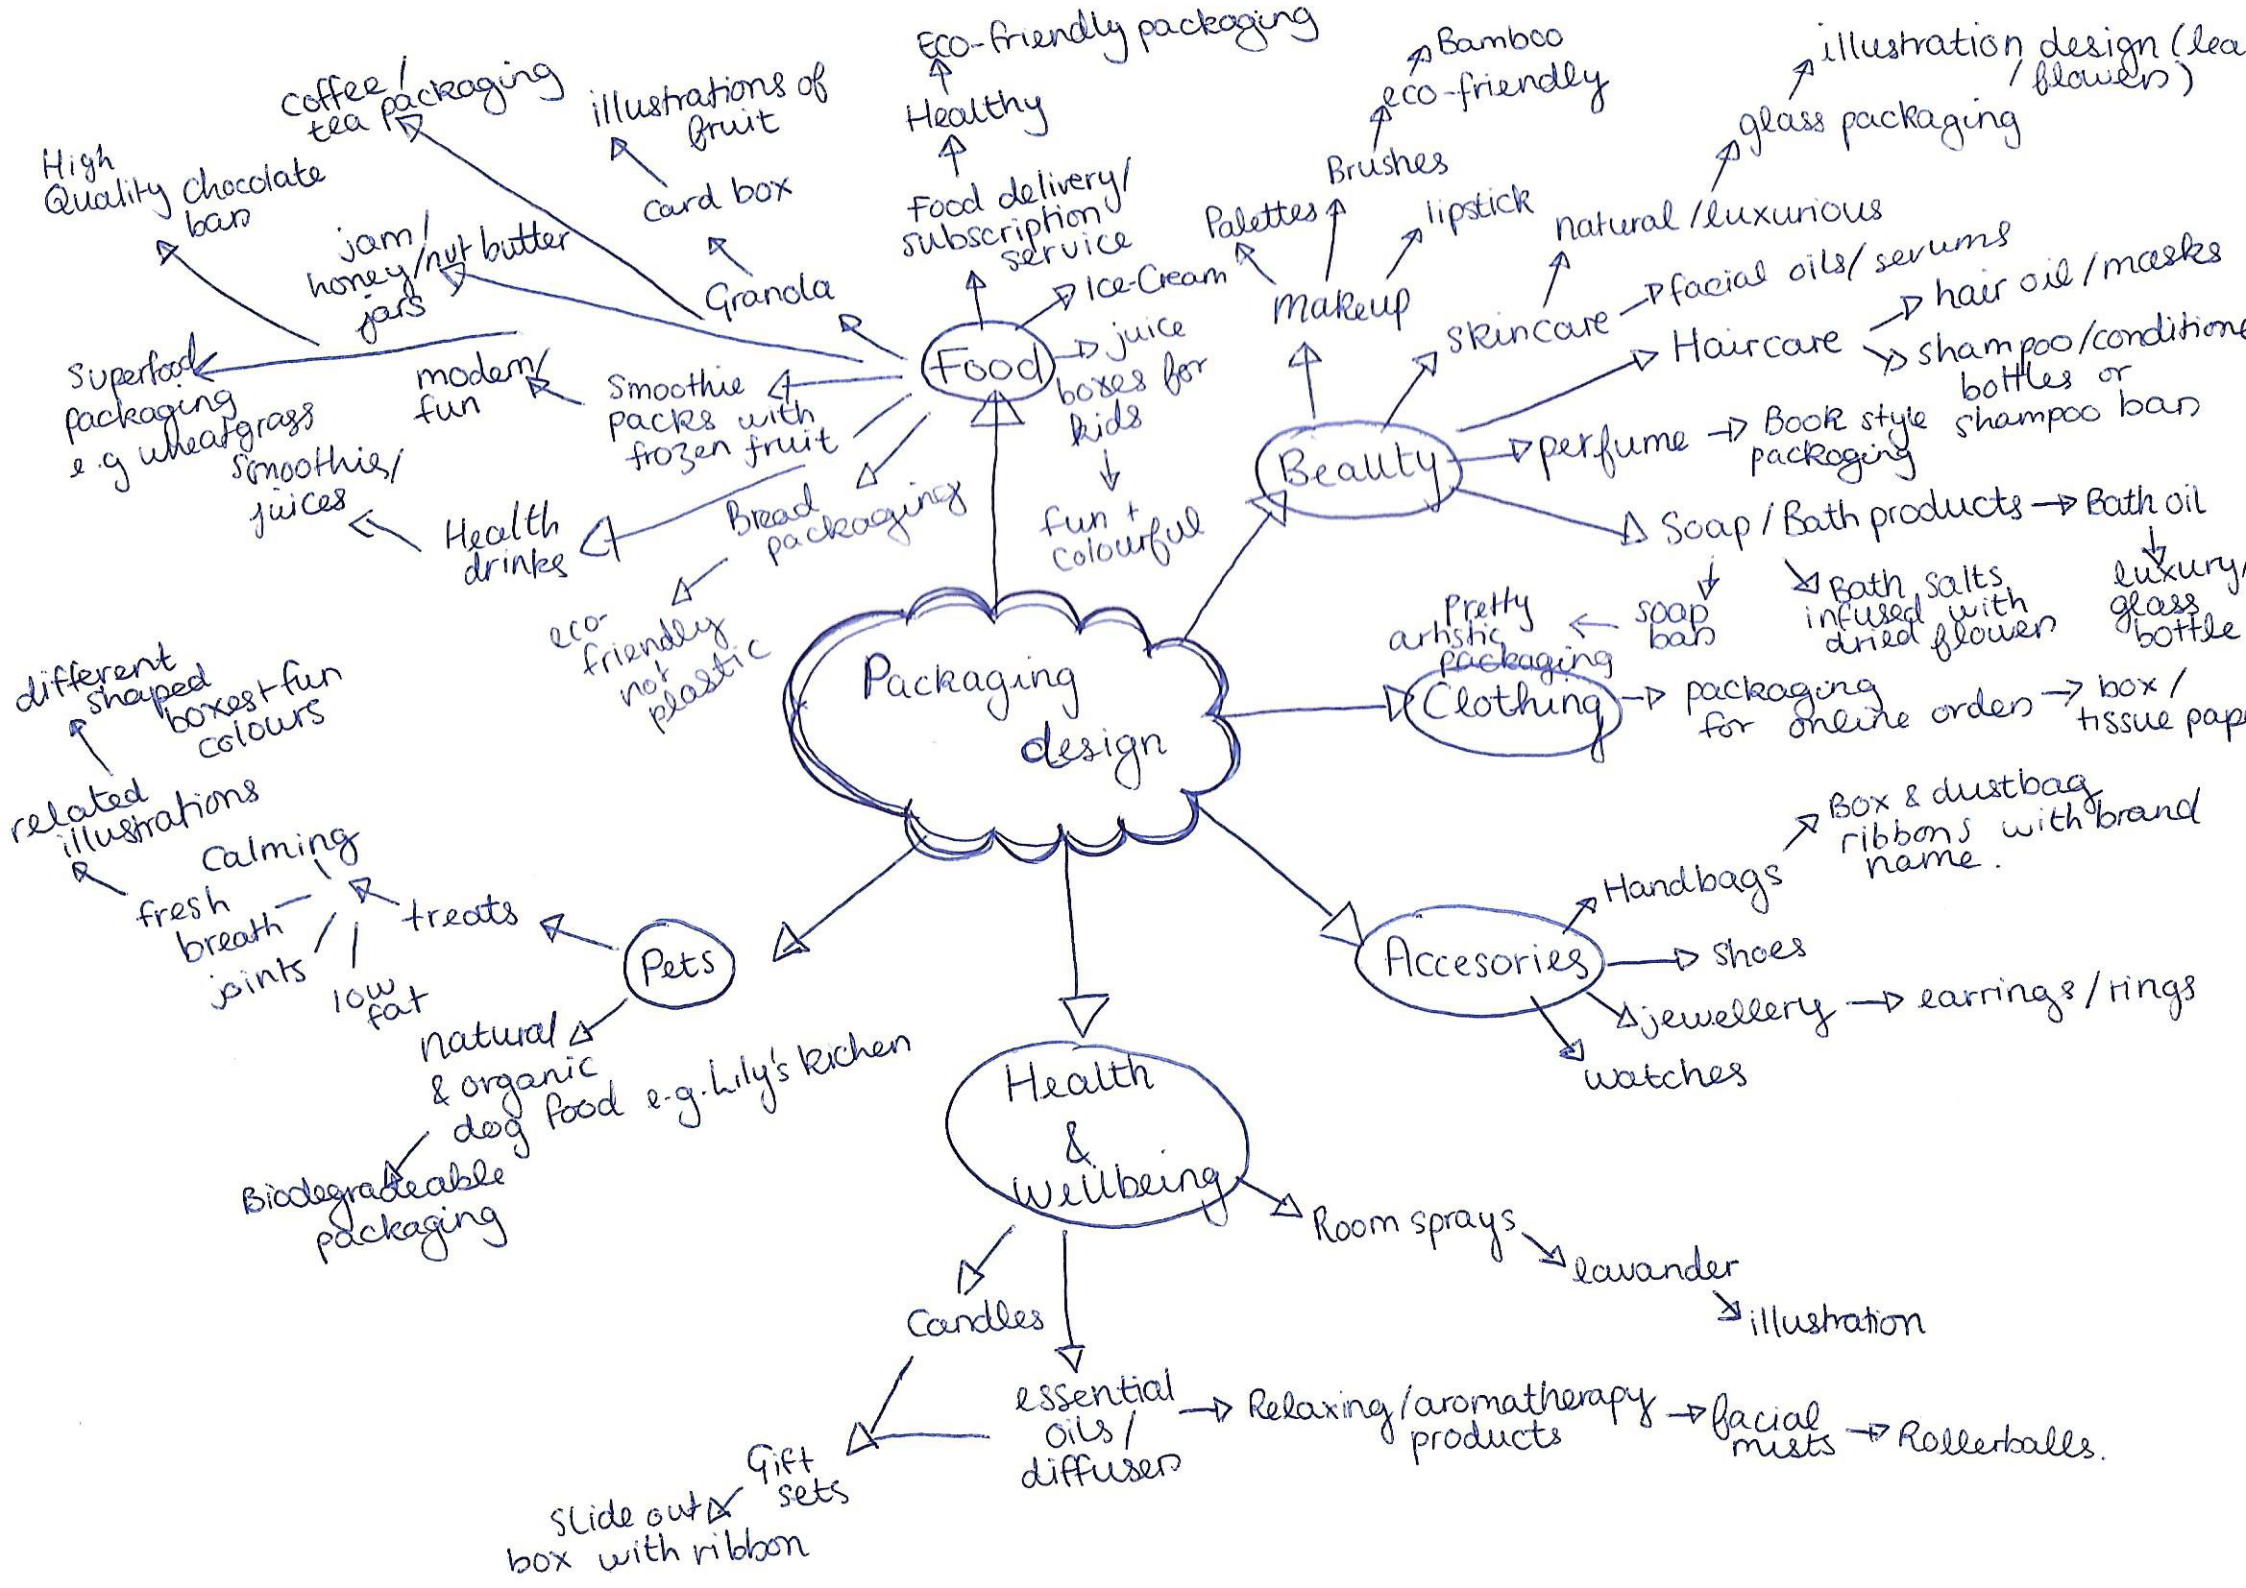 Packaging
design
Food
Eco-friendly packaging
Healthy
Food delivery/
subscription
service
Ice-Cream
juice
boxes for
kids
fun +
colourful
Granola
Card box
illustrations of
fruit
coffee/
tea packaging
jam/
honey/nut butter
jars
High
Quality chocolate
bars
Superfood
packaging
e.g wheatgrass
Smoothie
packs with
frozen fruit
modern/
fun
Health
drinks
Smoothies/
juices
Bread
packaging
eco-
friendly
not
plastic
Beauty
Makeup
Palettes
Brushes
eco-friendly
Bamboo
lipstick
Skincare
natural/luxurious
glass packaging
illustration design (lea
/flowers)
facial oils/serums
Haircare
hair oil/masks
shampoo/conditione
bottles or
shampoo bars
perfume
Book style
packaging
Soap/Bath products
Bath oil
luxury/
glass
bottle
Bath salts
infused with
dried flowers
soap
bars
Pretty
artistic
packaging
Clothing
packaging
for online orders
box/
tissue pap
Accesories
Handbags
Box & dustbag
ribbons with brand
name.
Shoes
jewellery
earrings/rings
watches
Health
&
Wellbeing
Room sprays
lavander
illustration
Candles
essential
oils/
diffusers
Relaxing/aromatherapy
products
facial
mists
Rollerballs.
Gift
sets
Slide out
box with ribbon
Pets
treats
Calming
fresh
breath
joints
low
fat
related
illustrations
different
shaped
boxes+fun
colours
natural
& organic
dog food e.g. Lily's kichen
Biodegradeable
packaging